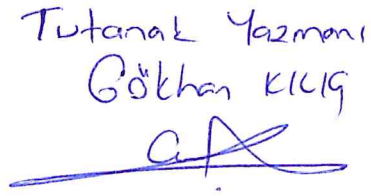 Tutanak Yazmanı
Gökhan KILIÇ